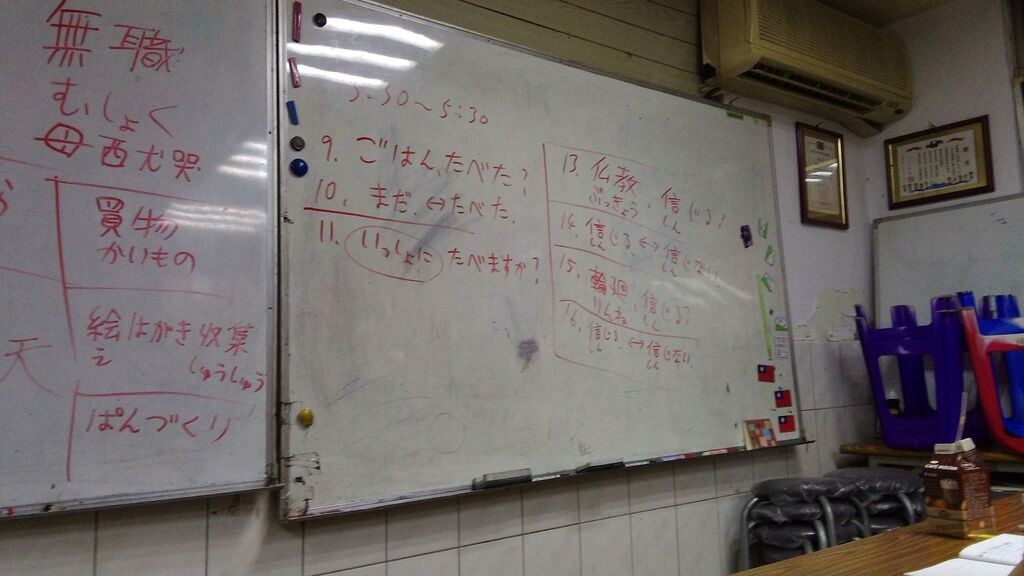 無職
むしょく
西犬哭
買物
かいもの
絵はがき収集
え しゅうしゅう
ぱんづくり
天
3:30〜5:30
9. ごはん、たべた?
10. まだ ↔ たべた.
11. いっしょに たべますか?
13. 仏教、信じる?
ぶっきょう しん
14. 信じる ↔ 信じない
しん しん
15. 輪廻、信じる?
りんね しん
16. 信じる ↔ 信じない.
しん しん